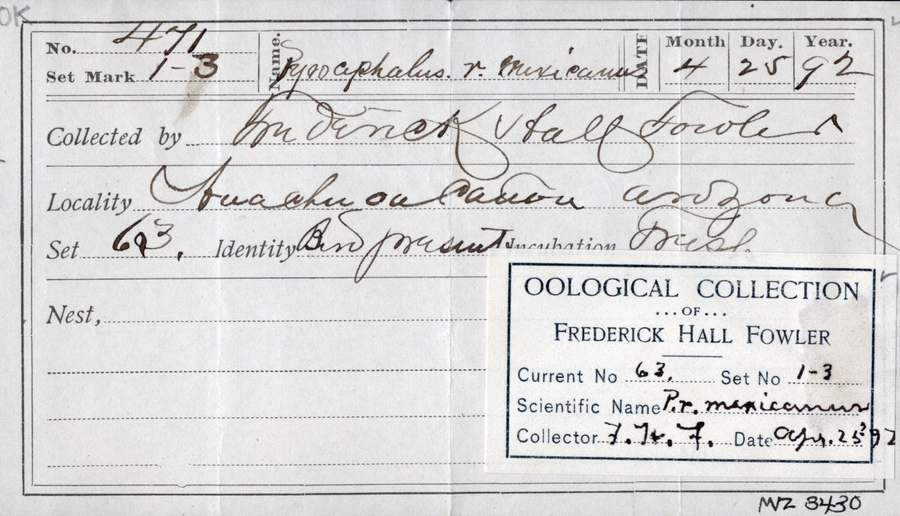 OK
No. 471 Name. Pyrocephalus. r. mexicanus DATE Month Day. Year.
Set Mark 1-3 4 25 92
Collected by Frederick Hall Fowler
Locality Huachuca Canon Arizona
Set 63. Identity Bird present Incubation Fresh
Nest,
OOLOGICAL COLLECTION
...OF...
FREDERICK HALL FOWLER
Current No 63. Set No 1-3
Scientific Name P. r. mexicanus
Collector F. H. F. Date Apr. 25 92
MVZ 3430